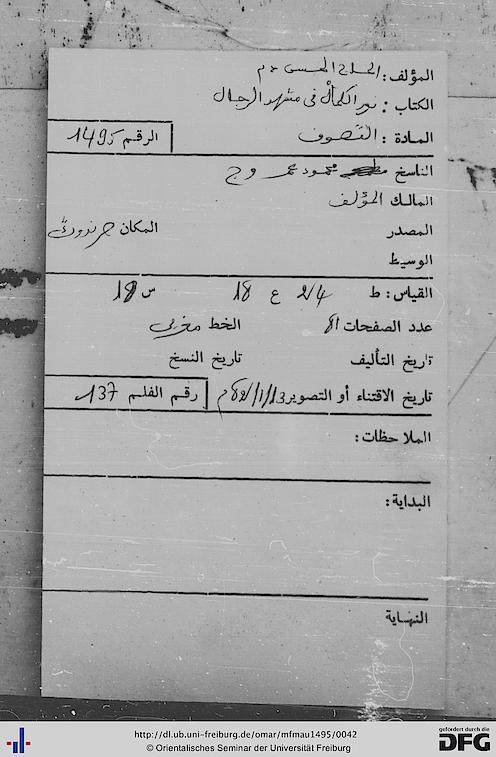 المؤلف: الحاج
الكتاب: نور الكمال في مشهد الرجال
المادة: التصوف
الرقم 1495
الناسخ محمود عمر
المالك المؤلف
المصدر
المكان
الوسيط
القياس: ط 24 ع 18 س 18
عدد الصفحات 81 الخط مغربي
تاريخ التأليف تاريخ النسخ
تاريخ الاقتناء أو التصوير
رقم الفلم 137
الملاحظات:
البداية:
النهاية
http://dl.ub.uni-freiburg.de/omar/mfmau1495/0042
© Orientalisches Seminar der Universität Freiburg
gefördert durch die
DFG